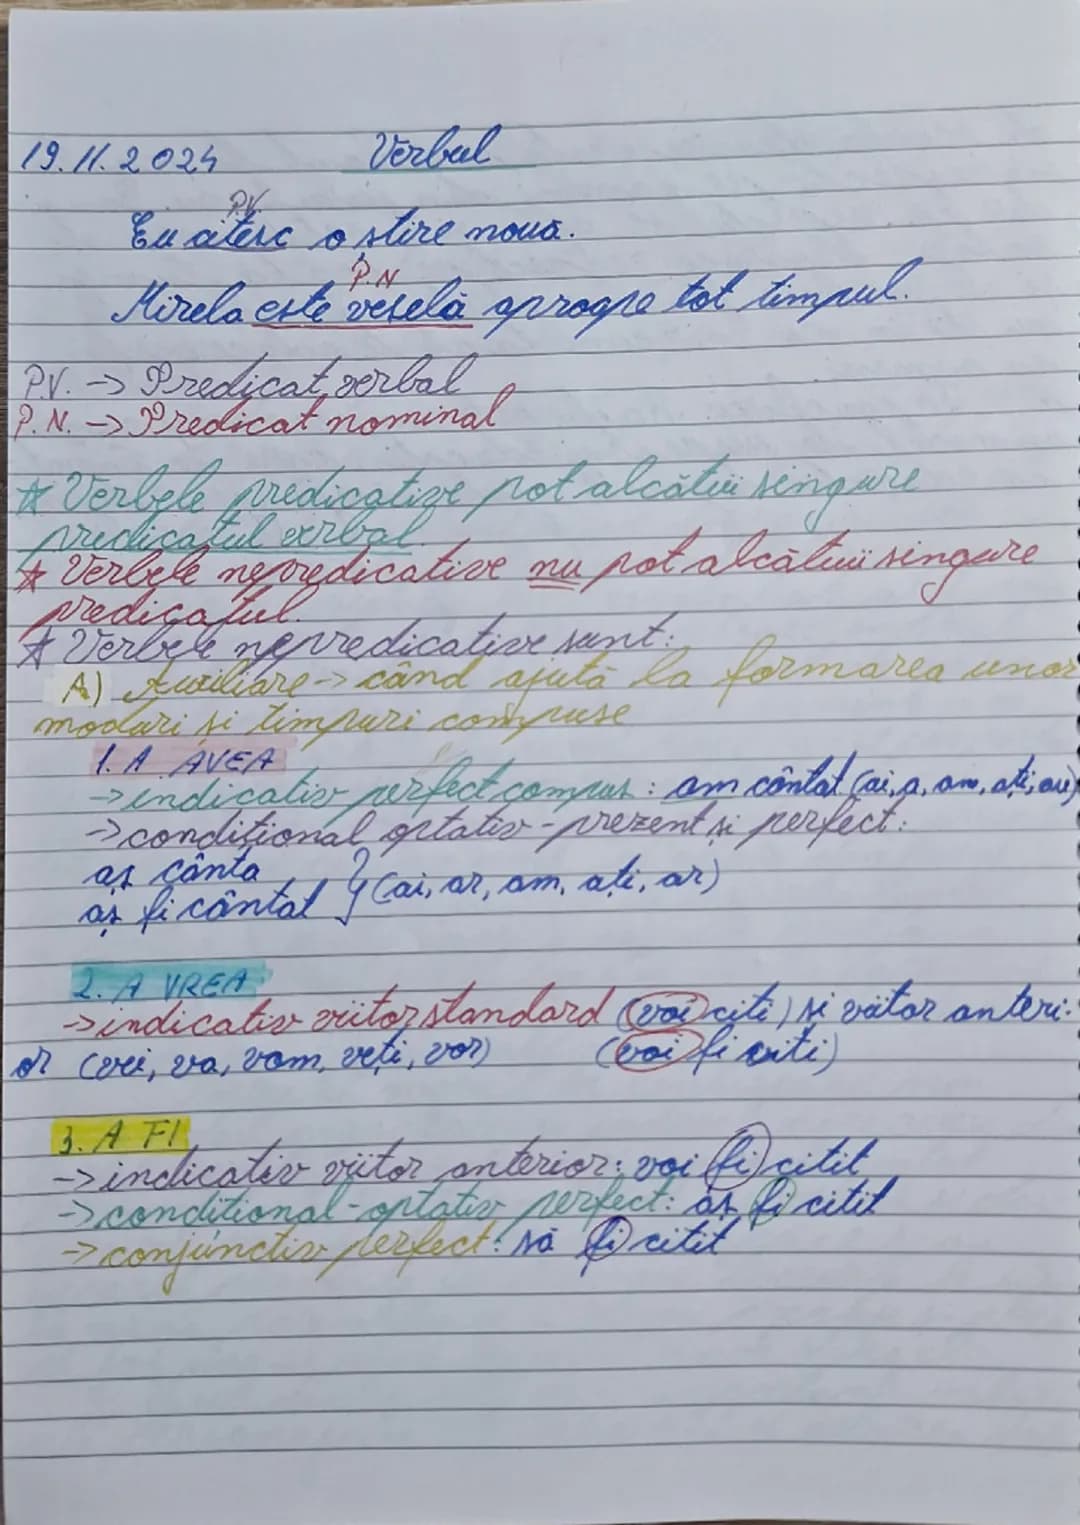 19.11.2024 Verbul
P.V.
Eu citesc o știre nouă.
P.N
Mirela este veselă aproape tot timpul.
P.V. -> Predicat verbal
P.N. -> Predicat nominal
☆ Verbele predicative pot alcătui singure
predicatul verbal
☆ Verbele nepredicative nu pot alcătui singure
predicatul.
☆ Verbele nepredicative sunt:
A) Auxiliare -> când ajută la formarea unor
moduri și timpuri compuse
1. A AVEA
-> indicativ perfect compus: am cântat (ai, a, am, ați, au)
-> condițional optativ-prezent și perfect:
aș cânta
aș fi cântat } (ai, ar, am, ați, ar)
2. A VREA
-> indicativ viitor standard (voi citi) și viitor anteri-
or (vei, va, vom, veți, vor) (voi fi citi)
3. A FI
-> indicativ viitor anterior: voi fi citit
-> condițional-optativ perfect: aș fi citit
-> conjunctiv perfect: să fi citit